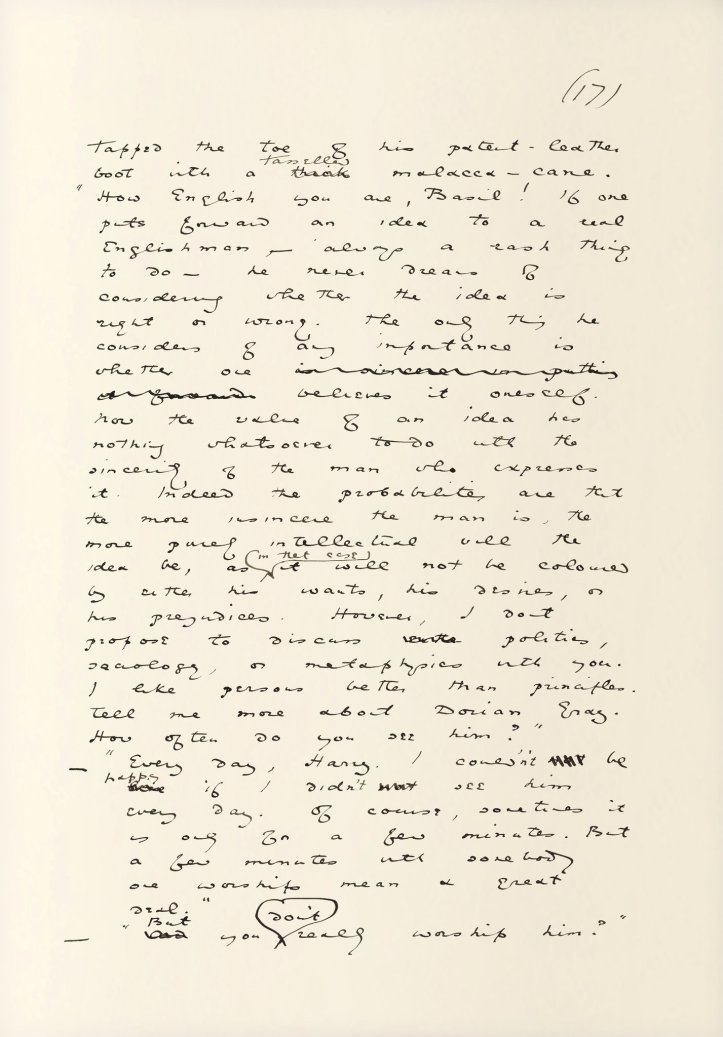 (17)
tapped the toe of his patent-leather
tasselled
boot with a thick malacca-cane.
"How English you are, Basil! If one
puts forward an idea to a real
Englishman, - always a rash thing
to do - he never dreams of
considering whether the idea is
right or wrong. The only thing he
considers of any importance is
whether one is sincere in putting
it forward believes it oneself.
Now the value of an idea has
nothing whatsoever to do with the
sincerity of the man who expresses
it. Indeed the probabilities are that
the more insincere the man is, the
more purely intellectual will the
in that case
idea be, as it will not be coloured
by either his wants, his desires, or
his prejudices. However, I don't
propose to discuss politics,
sociology, or metaphysics with you.
I like persons better than principles.
Tell me more about Dorian Gray.
How often do you see him?"
- "Every day, Harry. I couldn't be
happy
if I didn't not see him
every day. Of course, sometimes it
is only for a few minutes. But
a few minutes with somebody
one worships mean a great
deal."
But don't
- "you really worship him?"